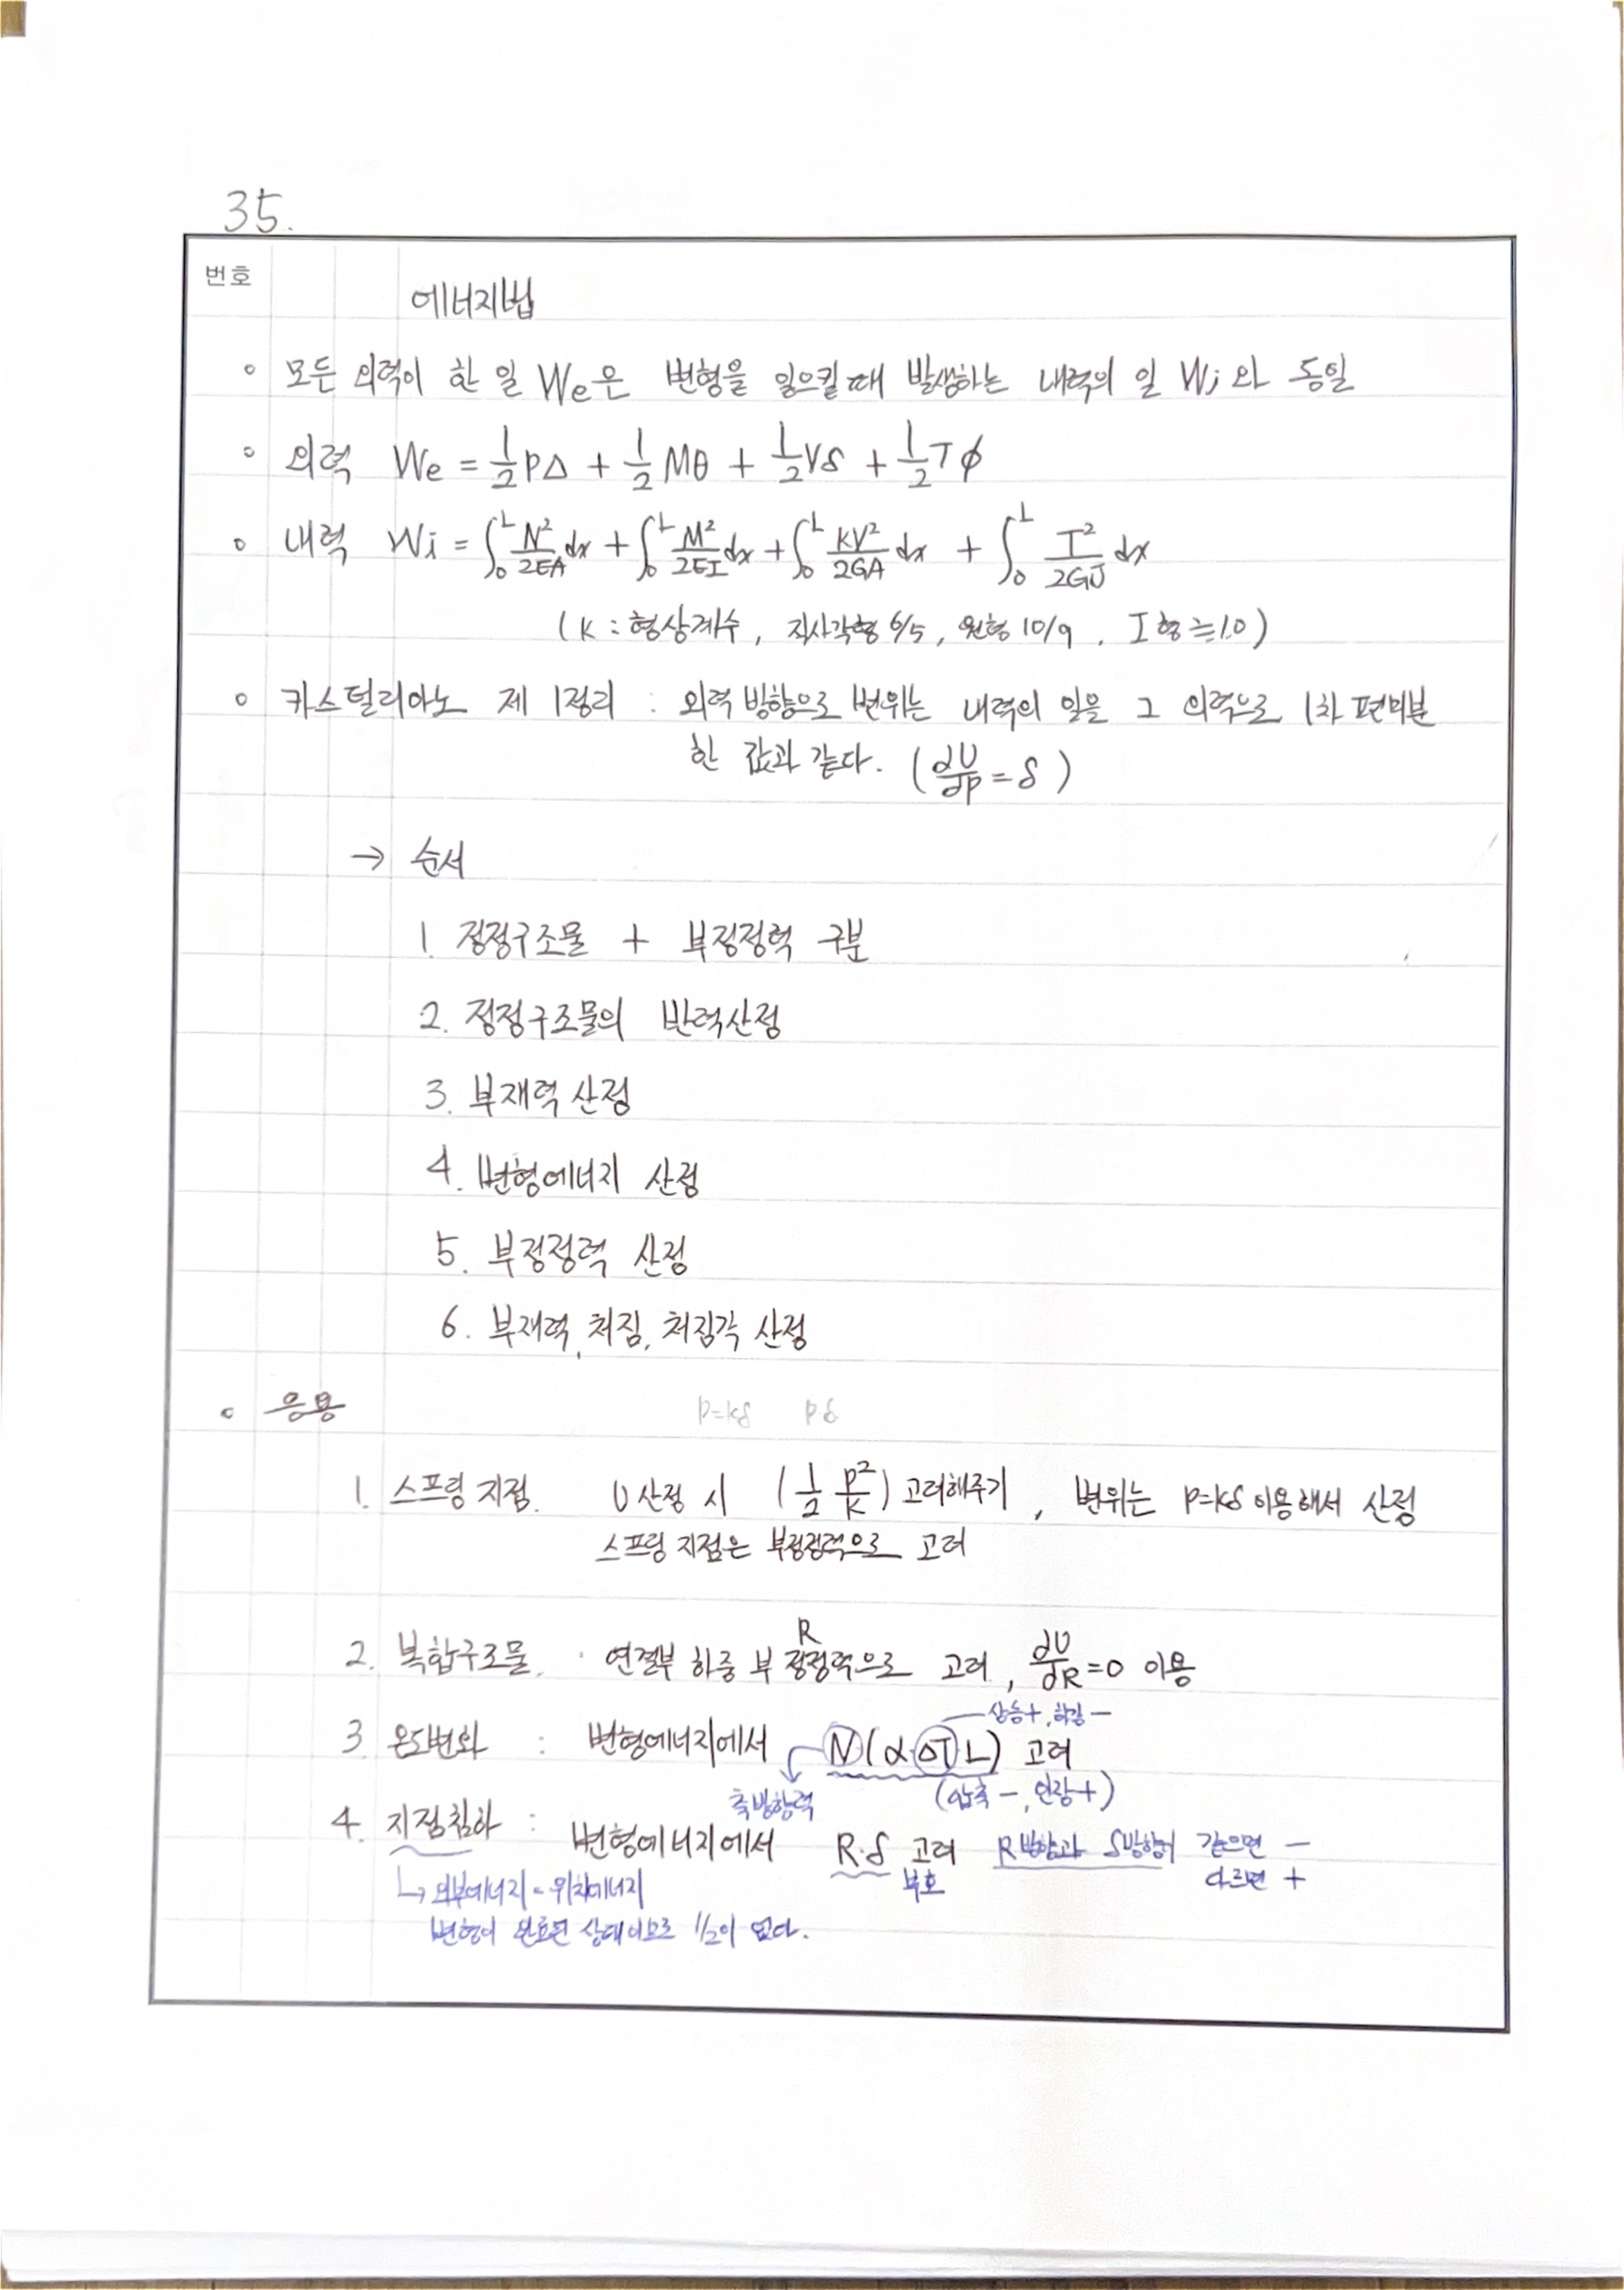 35.
번호
에너지법
◦ 모든 외력이 한 일 We은 변형을 일으킬 때 발생하는 내력의 일 Wi 와 동일
◦ 외력 We = 1/2 PΔ + 1/2 Mθ + 1/2 Vδ + 1/2 Tϕ
◦ 내력 Wi = ∫₀ᴸ N²/2EA dx + ∫₀ᴸ M²/2EI dx + ∫₀ᴸ kV²/2GA dx + ∫₀ᴸ T²/2GJ dx
(k : 형상계수, 직사각형 6/5, 원형 10/9, I형 ≒ 1.0)
◦ 카스틸리아노 제 1정리 : 외력 방향으로 변위는 내력의 일을 그 외력으로 1차 편미분
한 값과 같다. (∂U/∂P = δ)
→ 순서
1. 정정구조물 + 부정정력 구분
2. 정정구조물의 반력산정
3. 부재력 산정
4. 변형에너지 산정
5. 부정정력 산정
6. 부재력, 처짐, 처짐각 산정
◦ 응용 P=kδ Pδ
1. 스프링 지점. U 산정 시 (1/2 P²/k) 고려해주기, 변위는 P=kδ 이용해서 산정
스프링 지점은 부정정력으로 고려
R
2. 복합구조물. 연결부 하중 부정정력으로 고려, ∂U/∂R = 0 이용
상승+, 하강−
3. 온도변화 : 변형에너지에서 N(α·ΔT·L) 고려
축방향력 (압축−, 인장+)
4. 지점침하 : 변형에너지에서 R·δ 고려 R방향과 δ방향이 같으면 −
↳ 외부에너지 = 위치에너지 부호 다르면 +
변형이 완료된 상태이므로 1/2이 없다.